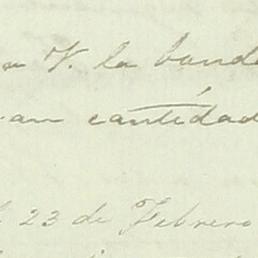 V. la band
an cantidad
23 de Febrero